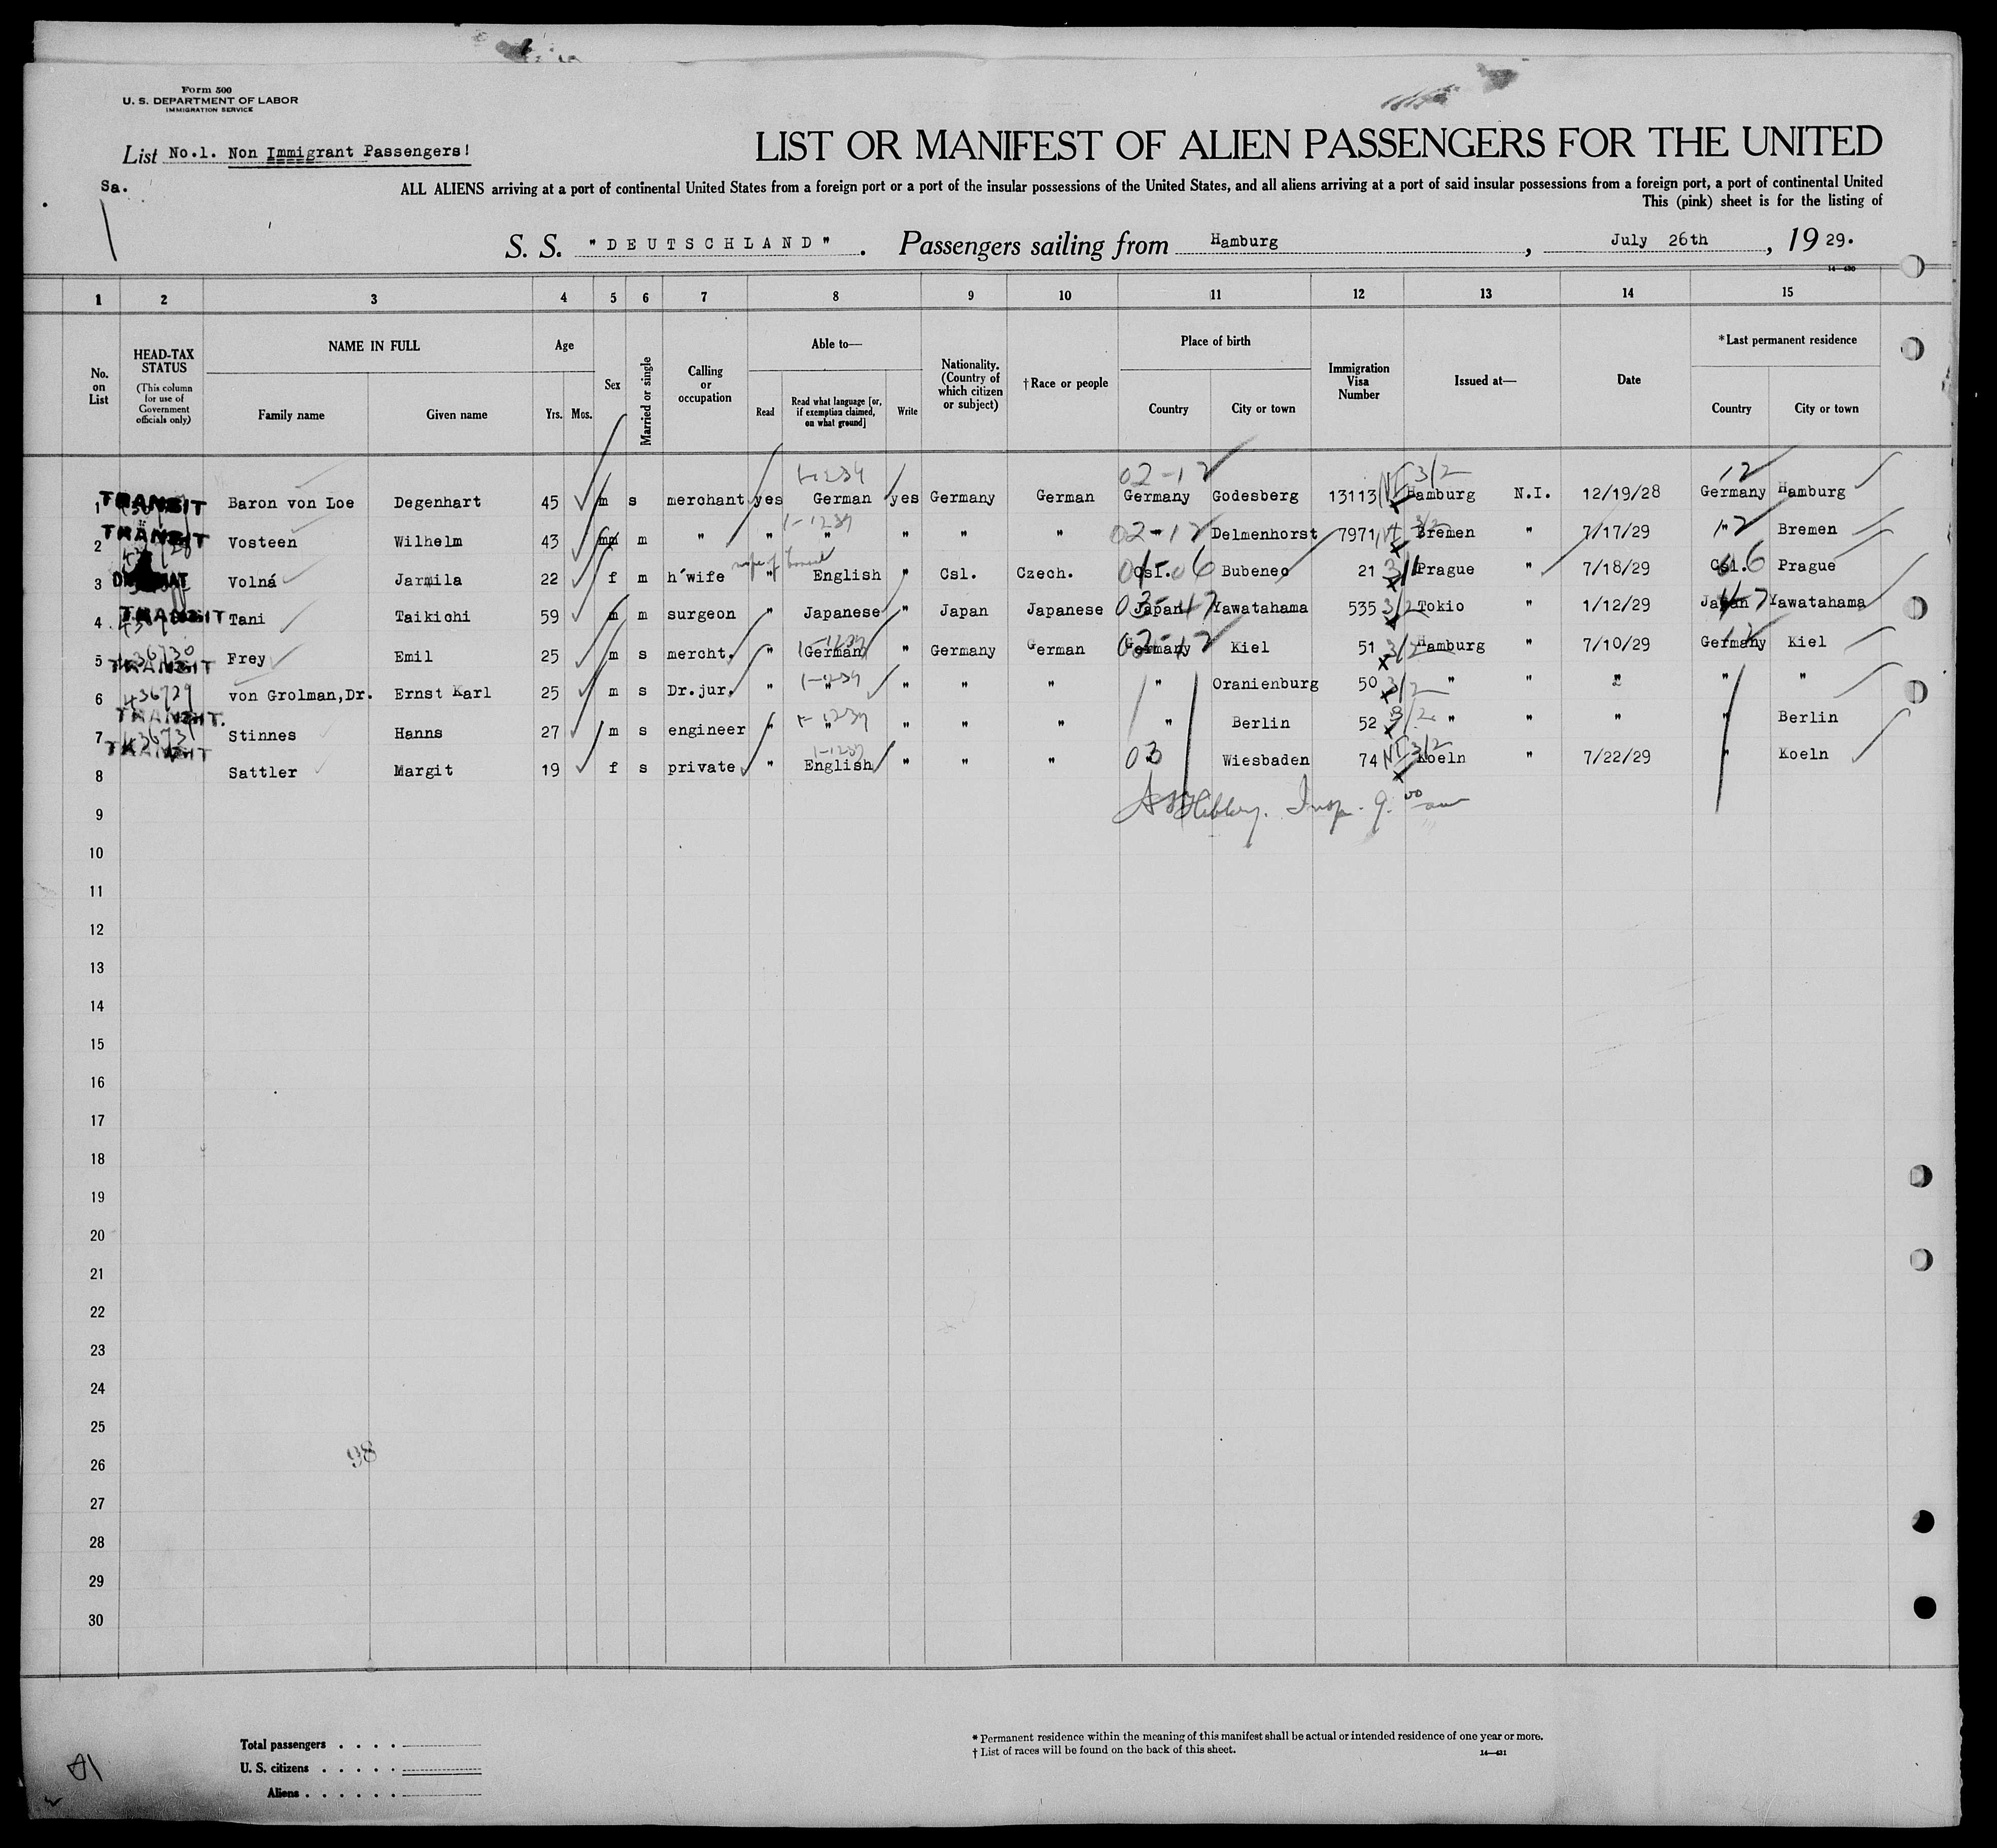 Form 500
U. S. DEPARTMENT OF LABOR
IMMIGRATION SERVICE
List No.1. Non Immigrant Passengers!
Sa.
LIST OR MANIFEST OF ALIEN PASSENGERS FOR THE UNITED
ALL ALIENS arriving at a port of continental United States from a foreign port or a port of the insular possessions of the United States, and all aliens arriving at a port of said insular possessions from a foreign port, a port of continental United
This (pink) sheet is for the listing of
S. S. "DEUTSCHLAND". Passengers sailing from Hamburg, July 26th, 1929.
14—430
1 2 3 4 5 6 7 8 9 10 11 12 13 14 15
No. on List
HEAD-TAX STATUS (This column for use of Government officials only)
NAME IN FULL
Family name Given name
Age
Yrs. Mos.
Sex
Married or single
Calling or occupation
Able to—
Read Read what language [or, if exemption claimed, on what ground] Write
Nationality. (Country of which citizen or subject)
†Race or people
Place of birth
Country City or town
Immigration Visa Number
Issued at—
Date
*Last permanent residence
Country City or town
1-1234 02-12 NI 3/2 12
1 TRANSIT Baron von Loe Degenhart 45 m s merchant yes German yes Germany German Germany Godesberg 13113 Hamburg N.I. 12/19/28 Germany Hamburg
2 TRANSIT Vosteen Wilhelm 43 mm m " " " " " " 02-12 Delmenhorst 7971 Bremen " 7/17/29 " Bremen
3 Volná Jarmila 22 f m h´wife " English " Csl. Czech. Csl. Bubenec 21 Prague " 7/18/29 Csl. Prague
4 TRANSIT Tani Taikichi 59 m m surgeon " Japanese " Japan Japanese Japan Yawatahama 535 Tokio " 1/12/29 Japan Yawatahama
5 436730 TRANSIT Frey Emil 25 m s mercht. " German " Germany German Germany Kiel 51 Hamburg " 7/10/29 Germany Kiel
6 436729 TRANSIT. von Grolman,Dr. Ernst Karl 25 m s Dr.jur. " " " " " " Oranienburg 50 3/2 " " " " "
7 436731 TRANSIT Stinnes Hanns 27 m s engineer " " " " " " Berlin 52 " " " " Berlin
8 Sattler Margit 19 f s private " English " " " 03 Wiesbaden 74 NI 3/2 Koeln " 7/22/29 " Koeln
9 Insp. 9.00 am
10
11
12
13
14
15
16
17
18
19
20
21
22
23
24
25
26
98
27
28
29
30
Total passengers . . . .
U. S. citizens . . . . .
Aliens . . . . . .
* Permanent residence within the meaning of this manifest shall be actual or intended residence of one year or more.
† List of races will be found on the back of this sheet.
14—431